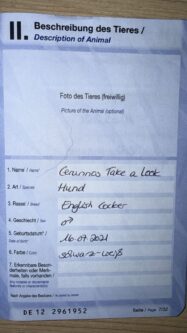 II. Beschreibung des Tieres /
Description of Animal
Foto des Tieres (freiwillig)
Picture of the Animal (optional)
1. Name / Name
Take a Look
2. Art / Species
Hund
3. Rasse / Breed
English Cocker
4. Geschlecht / Sex
♂
5. Geburtsdatum* /
Date of birth*
16.07.2021
6. Farbe / Color
schwarz-weiß
7. Erkennbare Beson-
derheiten oder Merk-
male, falls vorhanden /
DE 12 2961952
Seite / Page 7/32